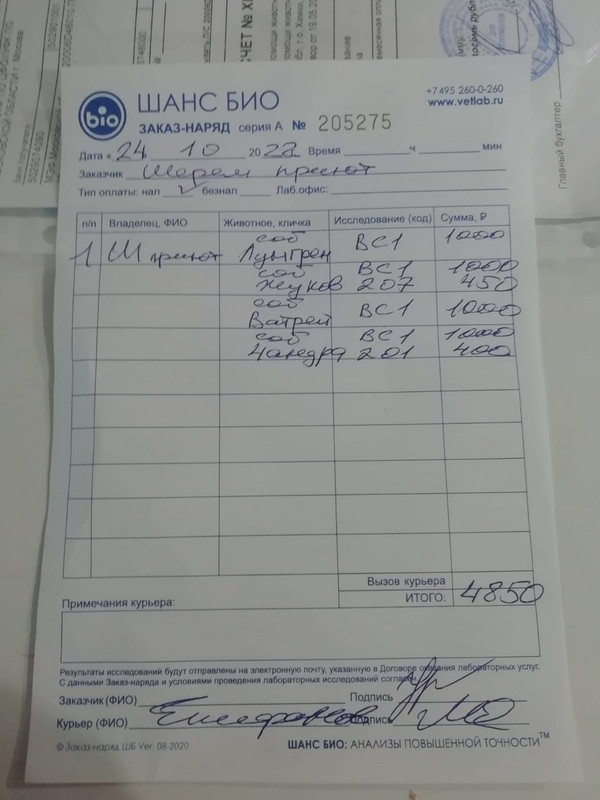 +7 495 260-0-260
www.vetlab.ru
bio ШАНС БИО
ЗАКАЗ-НАРЯД серия А № 205275
Дата « 24 10 2022 Время ч мин
Заказчик Шерем приют
Тип оплаты: нал ✓ безнал Лаб.офис:
п/п Владелец, ФИО Животное, кличка Исследование (код) Сумма, ₽
1 Ш приют соб Лунгрен ВС1 1000
соб ВС1 1000
Жуков 207 450
соб
Ватрей ВС1 1000
соб ВС1 1000
Чандра 201 400
Вызов курьера
ИТОГО: 4850
Примечания курьера:
Результаты исследований будут отправлены на электронную почту, указанную в Договоре оказания лабораторных услуг.
С данными Заказ-наряда и условиями проведения лабораторных исследований согласен
Заказчик (ФИО) Подпись
Курьер (ФИО) Подпись
© Заказ-наряд ШБ Ver. 08-2020 ШАНС БИО: АНАЛИЗЫ ПОВЫШЕННОЙ ТОЧНОСТИ™
Главный бухгалтер